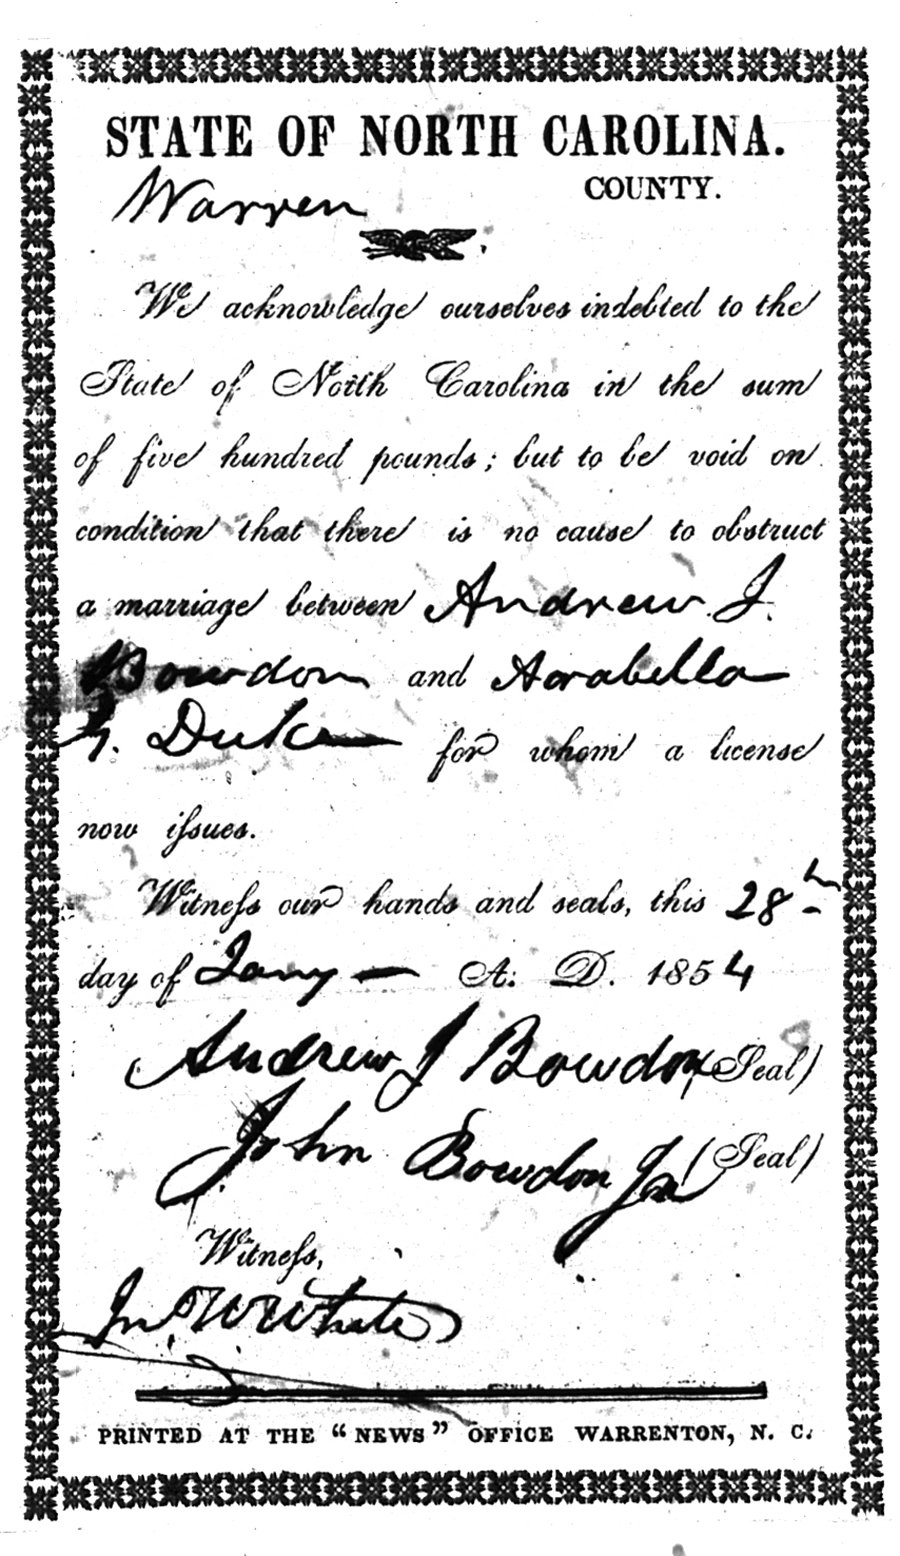 STATE OF NORTH CAROLINA.
Warren COUNTY.
We acknowledge ourselves indebted to the
State of North Carolina in the sum
of five hundred pounds; but to be void on
condition that there is no cause to obstruct
a marriage between Andrew J.
Bowdon and Arabella
Duke for whom a license
now iſsues.
Witneſs our hands and seals, this 28th
day of Jany — A: D. 1854
Andrew J Bowdon (Seal)
John Bowdon Jnr (Seal)
Witneſs,
Jno. W White
PRINTED AT THE “NEWS” OFFICE WARRENTON, N. C.